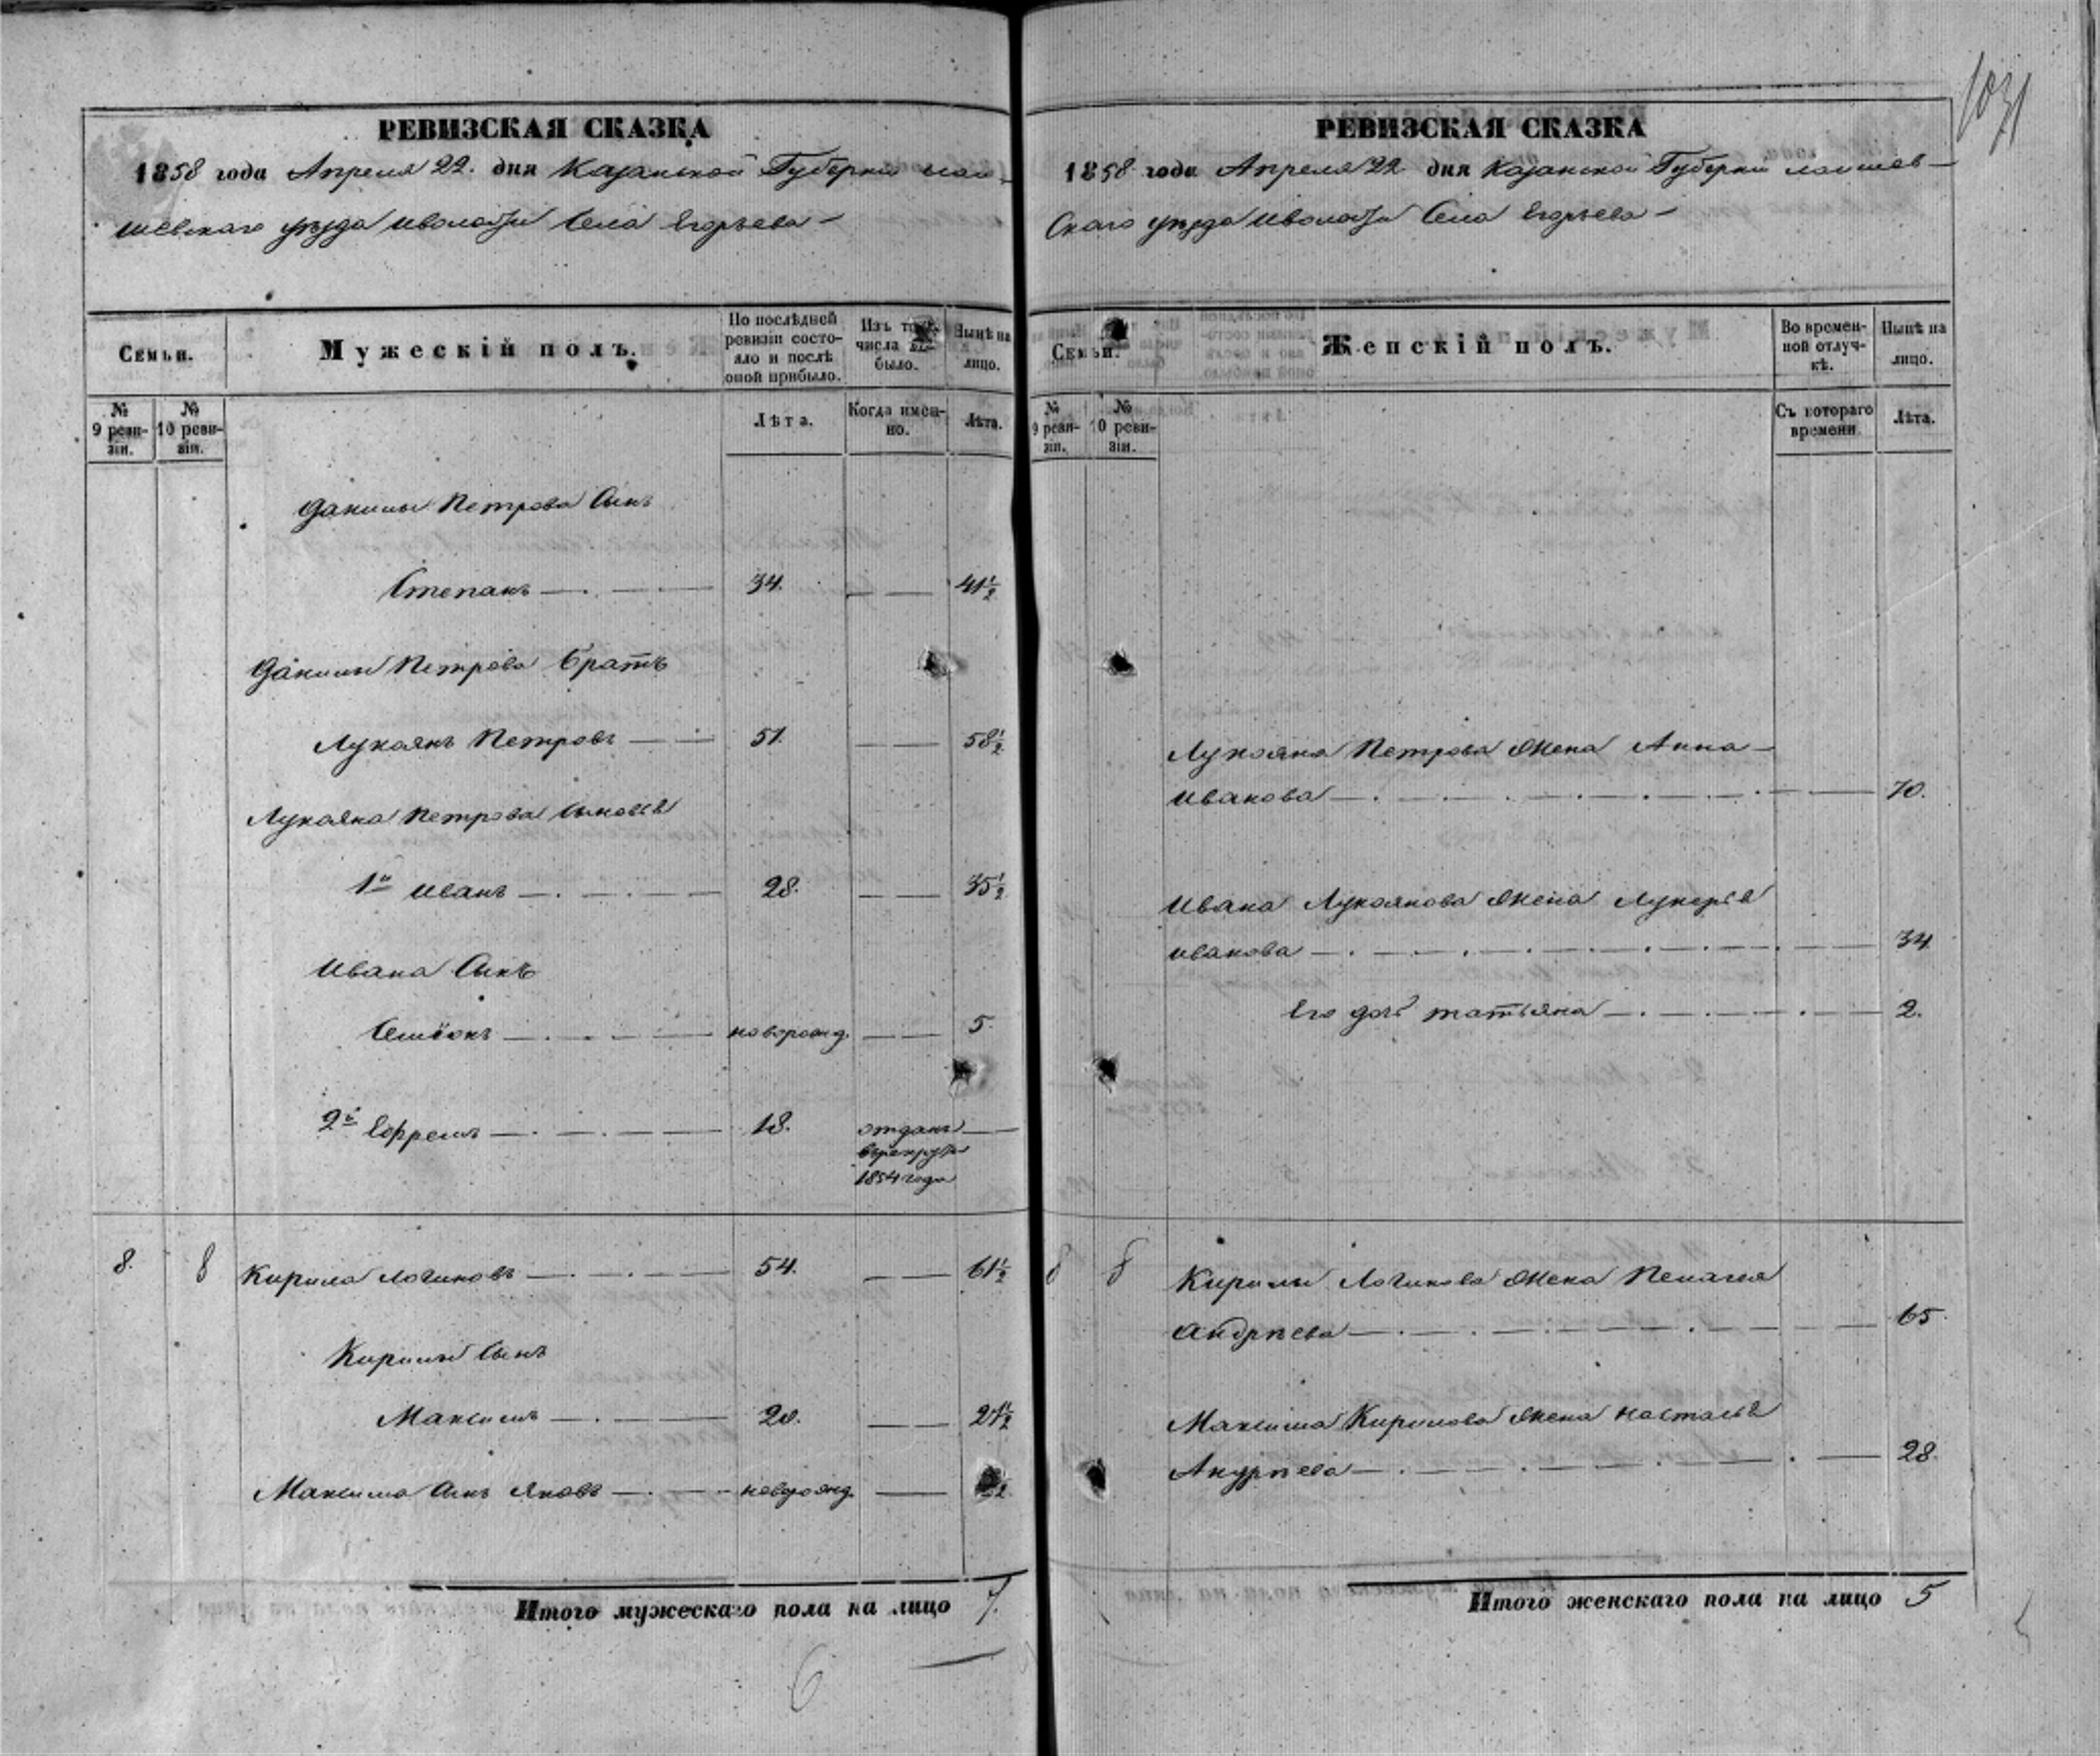 1031
РЕВИЗСКАЯ СКАЗКА
1858 года Апреля 22. дня Казанской Губерніи Лаи-
шевскаго уѣзда и волости Села Егорьева
Семьи.
Мужескій полъ.
По послѣдней ревизіи состояло и послѣ оной прибыло.
Изъ того числа выбыло.
Нынѣ на лицо.
№ 9 ревизіи.
№ 10 ревизіи.
Лѣта.
Когда именно.
Лѣта.
Данилы Петрова Сынъ
Степанъ 34. 41½
Данилы Петрова братъ
Лукоянъ Петровъ 51. 58½
Лукояна Петрова Сыновья
1й Иванъ 28. 35½
Ивана Сынъ
Семіонъ новорожд. 5.
2й Ефремъ 18. отданъ
въ рекруты
1854 года
8. 8 Кирила Логиновъ 54. 61½
Кирилы Сынъ
Максимъ 20. 27½
Максима Сынъ Яковъ новорожд.
Итого мужескаго пола на лицо 7.
6
РЕВИЗСКАЯ СКАЗКА
1858 года Апреля 22 дня Казанской Губерніи Лаишев-
скаго уѣзда и волости Села Егорьева
Семьи.
Женскій полъ.
Во временной отлучкѣ.
Нынѣ на лицо.
№ 9 ревизіи.
№ 10 ревизіи.
Съ котораго времени.
Лѣта.
Лукояна Петрова жена Анна
Иванова 70.
Ивана Лукоянова жена Лукерья
Иванова 34
Его дочь татьяна 2.
8 8 Кирилы Логинова жена Пелагея
Андрѣева 65.
Максима Кирилова жена Настасья
Андрѣева 28.
Итого женскаго пола на лицо 5